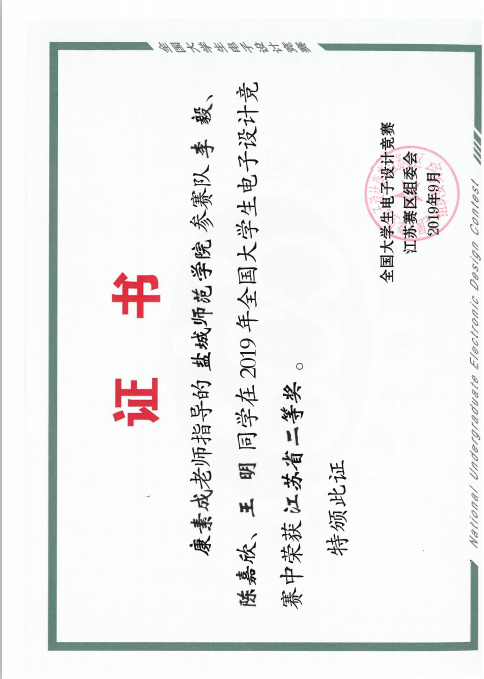 全国大学生电子设计竞赛
证 书
康素成老师指导的 盐城师范学院 参赛队 李 毅、
陈嘉欣、王 明 同学在 2019 年全国大学生电子设计竞
赛中荣获 江苏省二等奖 。
特颁此证
全国大学生电子设计竞赛
江苏赛区组委会
2019年9月
National Undergraduate Electronic Design Contest